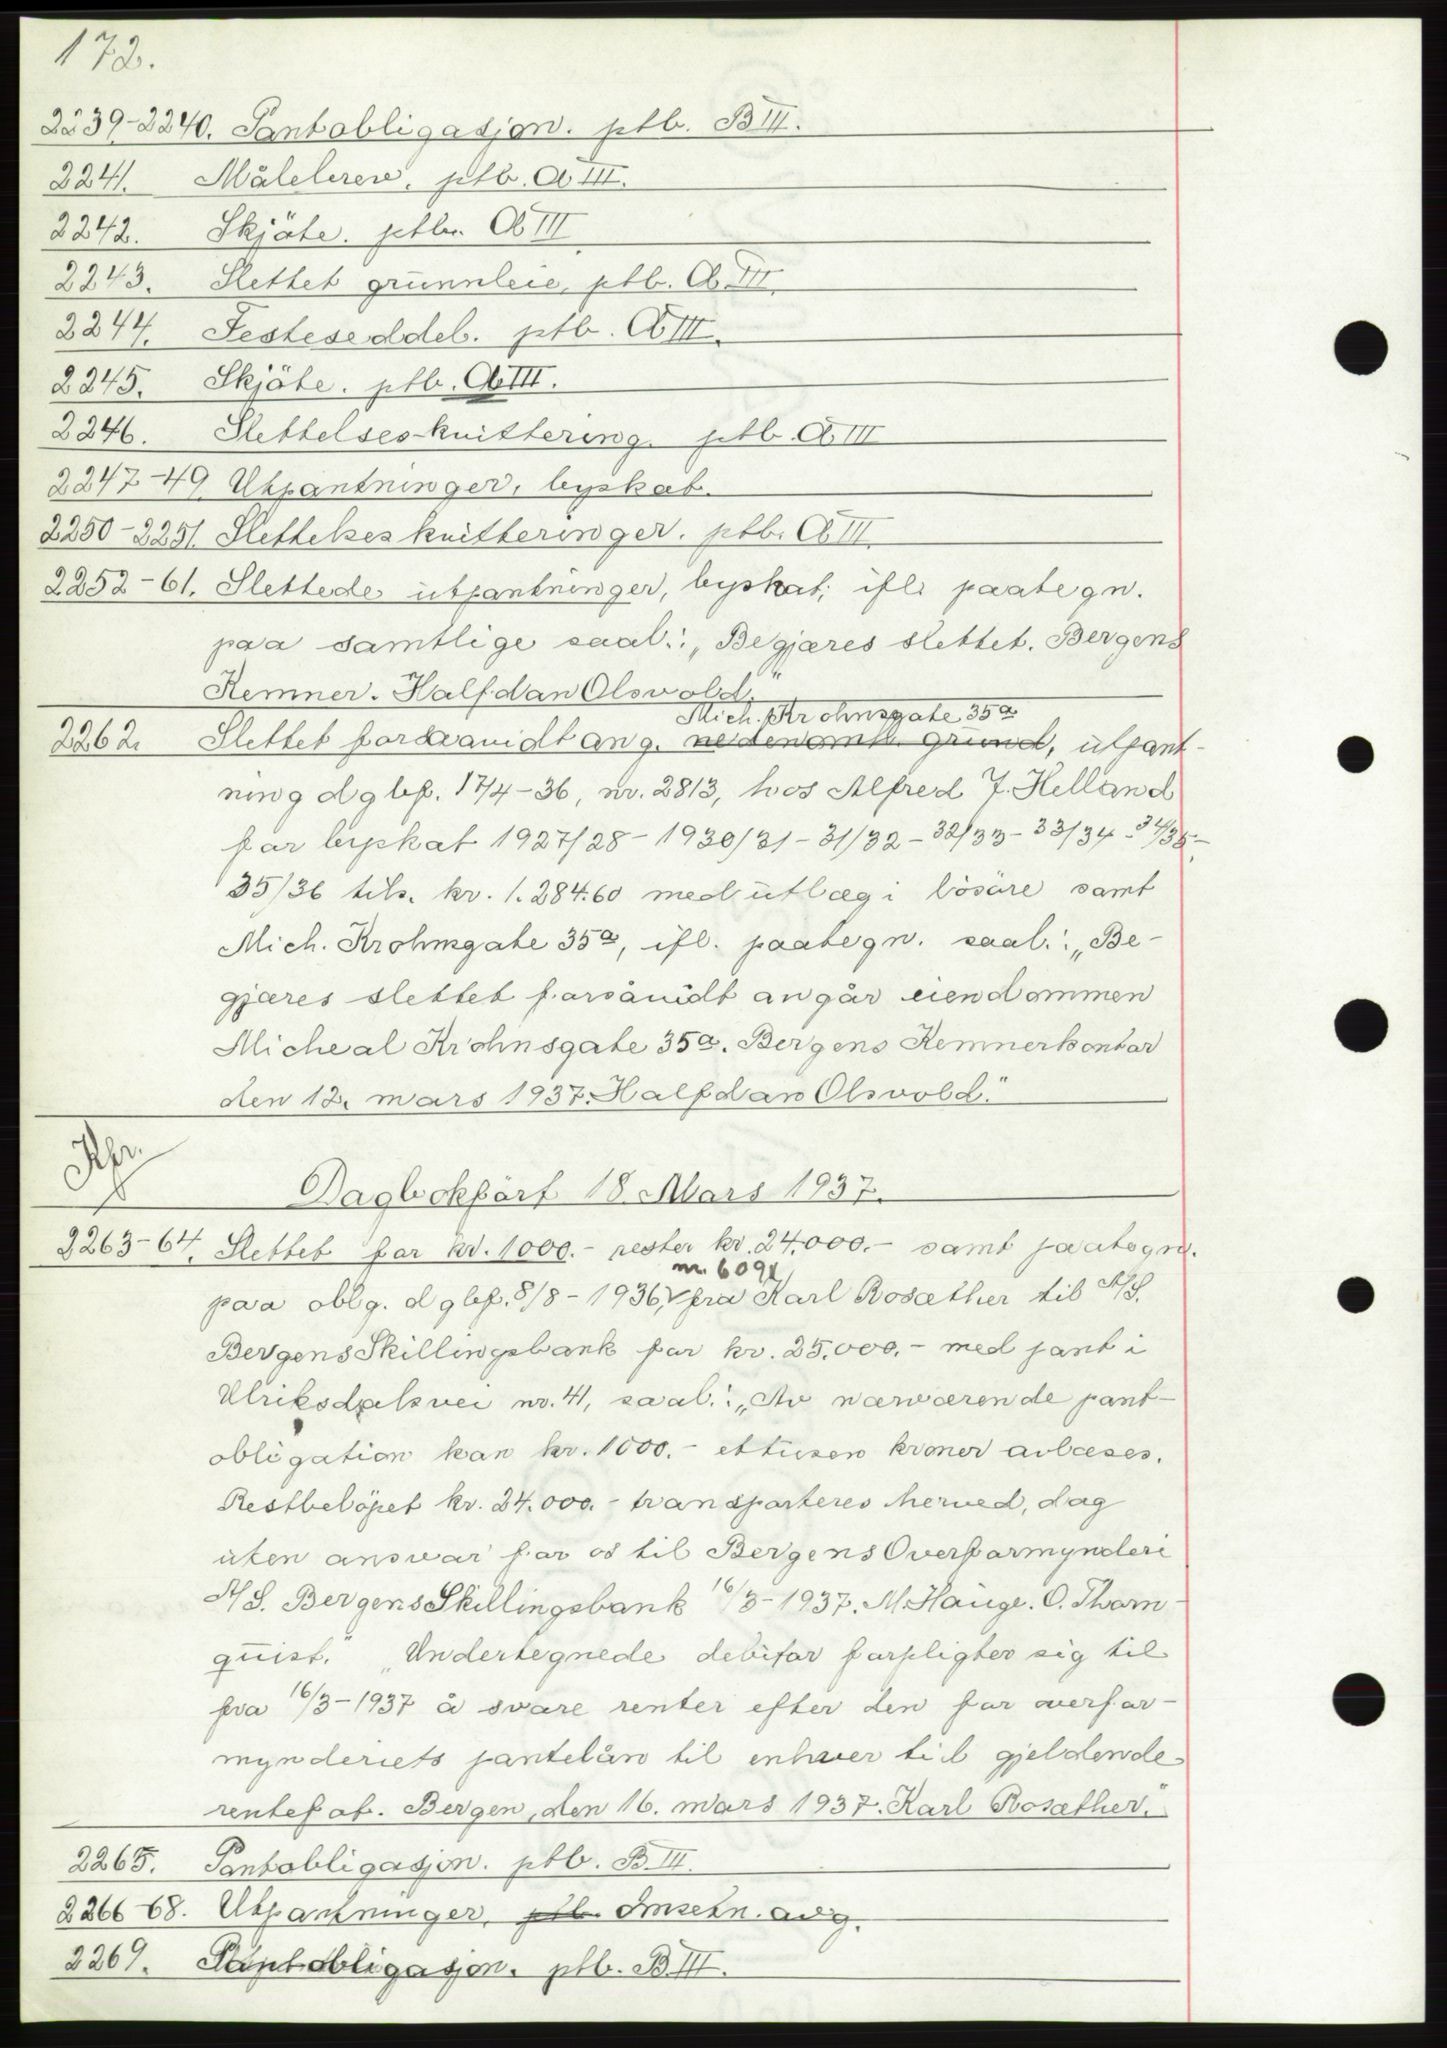 172.
2239-2240. Pantobligasjon. ptb. B III.
2241. Målebrev. ptb. A III.
2242. Skjöte. ptb. A III
2243. Slettet grunnleie, ptb. A III.
2244. Festeseddel. ptb. A III.
2245. Skjöte. ptb. A III.
2246. Slettelses-kvittering. ptb. A III
2247-49. Utpantninger, byskat.
2250-2251. Slettelses kvitteringer. ptb. A III.
2252-61. Slettede utpantninger, byskat; ifl. paategn.
paa samtlige saal.: „Begjæres slettet. Bergens
Kemner. Halfdan Olsvold."
Mich. Krohnsgate 35a
2262. Slettet forsåvidt ang. nedenomh. grund, utpant-
ning dgbf. 17/4-36, nr. 2813, hos Alfred J. Helland
for byskat 1927/28-1930/31-31/32-32/33-33/34-34/35-
35/36 tils. kr. 1.284.60 med utlæg i lösöre samt
Mich. Krohnsgate 35a, ifl. paategn. saal.: „Be-
gjæres slettet forsåvidt angår eiendommen
Micheal Krohnsgate 35a. Bergens Kemnerkontor
den 12. mars 1937. Halfdan Olsvold."
Kfr.
Dagbokfört 18 Mars 1937.
2263-64. Slettet for kr. 1000.- rester kr. 24.000.- samt paategn.
nr. 6091
paa oblg. dgbf. 8/8-1936, fra Karl Rosæther til A/S.
Bergens Skillingsbank for kr. 25.000.- med pant i
Ulriksdalsvei nr. 41, saal.: „Av nærværende pant-
obligation kan kr. 1000.- ettusen kroner avlæses.
Restbelöpet kr. 24.000.- transporteres herved, dag
uten ansvar for os til Bergens Overformynderi
A/S. Bergens Skillingsbank 16/3-1937. M. Hauge. O. Thorn-
quist." „Undertegnede debitor forpligter sig til
fra 16/3-1937 å svare renter efter den for overfor-
mynderiets pantelån til enhver tid gjeldende
rentefot. Bergen, den 16. mars 1937. Karl Rosæther."
2265. Pantobligasjon. ptb. B III.
2266-68. Utpantninger, ptb. Omsetn. avg.
2269. Pantobligasjon. ptb. B III.